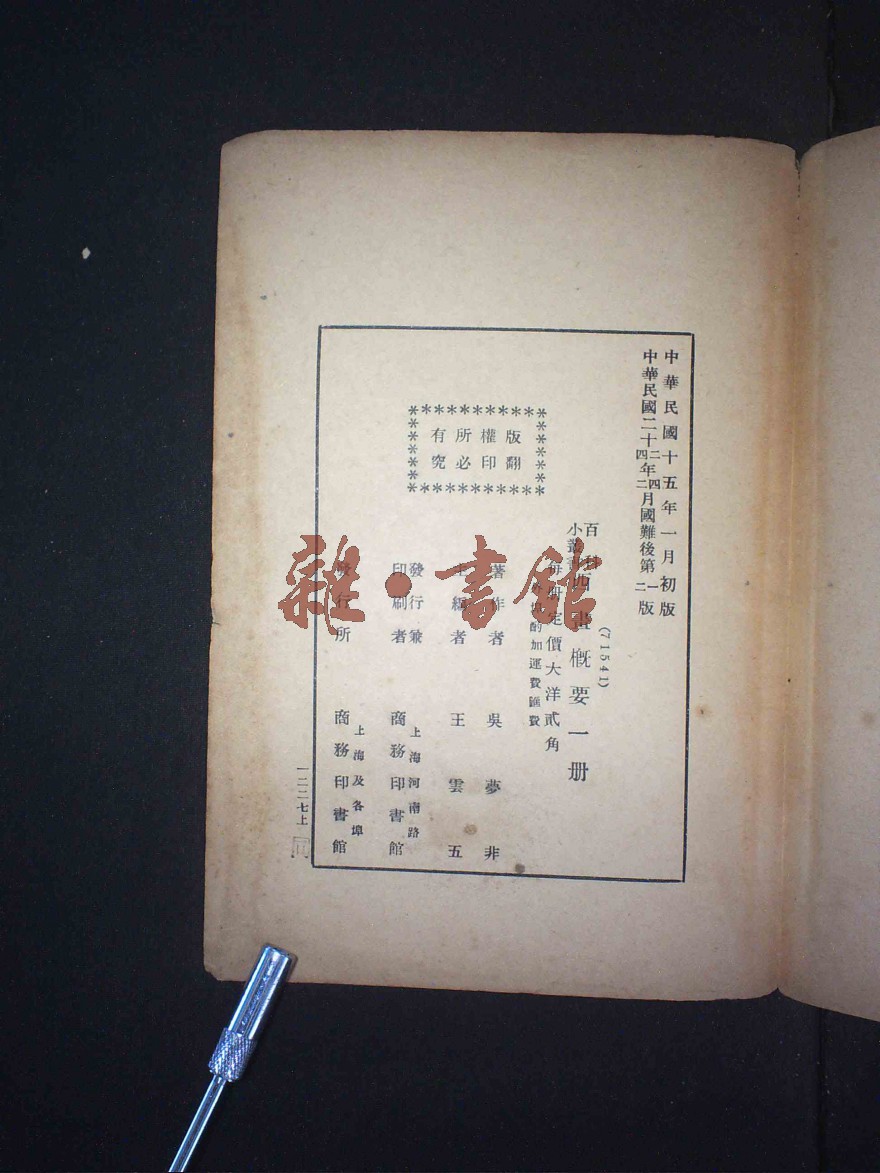 中華民國十五年一月初版
中華民國二十二年四月國難後第一版
中華民國二十四年二月國難後第二版
(71541)
百科小叢書
西畫概要一册
每冊定價大洋貳角
外埠酌加運費匯費
著作者 吳夢非
主編者 王雲五
發行兼印刷者 上海河南路 商務印書館
發行所 上海及各埠 商務印書館
版權所有
翻印必究
一二二七上
雜·書館